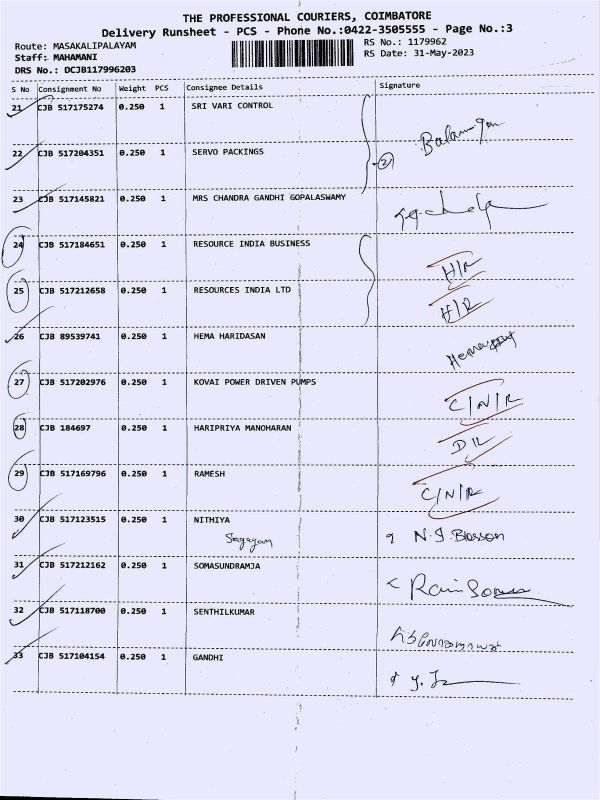 THE PROFESSIONAL COURIERS, COIMBATORE
Delivery Runsheet - PCS - Phone No.:0422-3505555 - Page No.:3
Route: MASAKALIPALAYAM
RS No.: 1179962
Staff: MAHAMANI
RS Date: 31-May-2023
DRS No.: DCJB117996203
S No Consignment No Weight PCS Consignee Details Signature
21 CJB 517175274 0.250 1 SRI VARI CONTROL
22 CJB 517204351 0.250 1 SERVO PACKINGS 2
23 CJB 517145821 0.250 1 MRS CHANDRA GANDHI GOPALASWAMY
24 CJB 517184651 0.250 1 RESOURCE INDIA BUSINESS H/R
25 CJB 517212658 0.250 1 RESOURCES INDIA LTD H/R
26 CJB 89539741 0.250 1 HEMA HARIDASAN
27 CJB 517202976 0.250 1 KOVAI POWER DRIVEN PUMPS C/N/R
28 CJB 184697 0.250 1 HARIPRIYA MANOHARAN DL
29 CJB 517169796 0.250 1 RAMESH C/N/R
30 CJB 517123515 0.250 1 NITHIYA N.J. Blosson
31 CJB 517212162 0.250 1 SOMASUNDRAMJA
32 CJB 517118700 0.250 1 SENTHILKUMAR
33 CJB 517104154 0.250 1 GANDHI